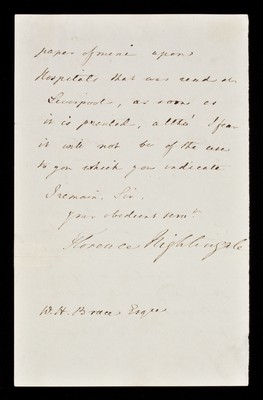 paper of mine upon
Hospitals that was read at
Liverpool, as soon as
it is printed, altho' I fear
it will not be of the use
to you which you indicate
I remain, Sir,
your obedient servt
Florence Nightingale
W. H. Brace Esqre